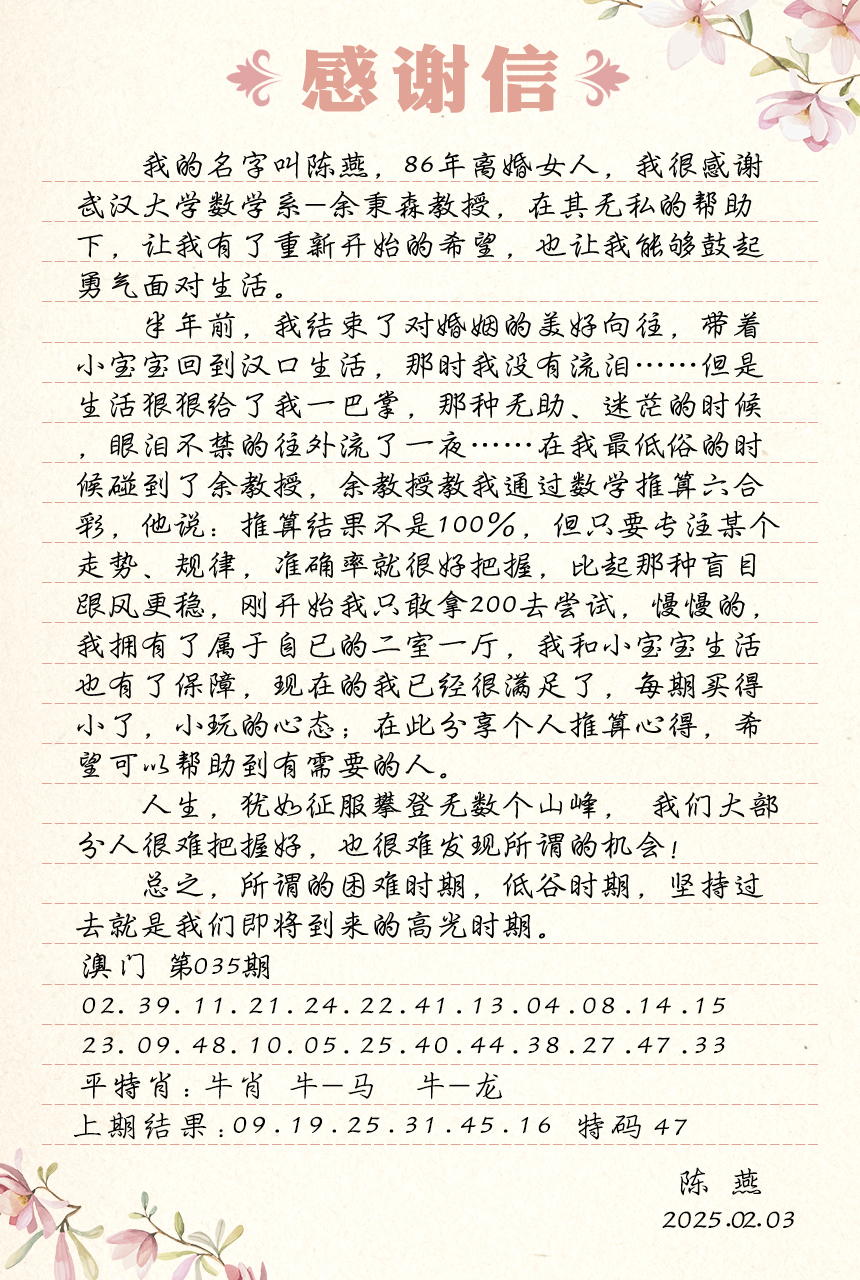 感谢信
我的名字叫陈燕，86年离婚女人，我很感谢
武汉大学数学系—余秉森教授，在其无私的帮助
下，让我有了重新开始的希望，也让我能够鼓起
勇气面对生活。
半年前，我结束了对婚姻的美好向往，带着
小宝宝回到汉口生活，那时我没有流泪……但是
生活狠狠给了我一巴掌，那种无助、迷茫的时候
，眼泪不禁的往外流了一夜……在我最低俗的时
候碰到了余教授，余教授教我通过数学推算六合
彩，他说：推算结果不是100%，但只要专注某个
走势、规律，准确率就很好把握，比起那种盲目
跟风更稳，刚开始我只敢拿200去尝试，慢慢的，
我拥有了属于自已的二室一厅，我和小宝宝生活
也有了保障，现在的我已经很满足了，每期买得
小了，小玩的心态；在此分享个人推算心得，希
望可以帮助到有需要的人。
人生，犹如征服攀登无数个山峰， 我们大部
分人很难把握好，也很难发现所谓的机会！
总之，所谓的困难时期，低谷时期，坚持过
去就是我们即将到来的高光时期。
澳门 第035期
02.39.11.21.24.22.41.13.04.08.14.15
23.09.48.10.05.25.40.44.38.27.47.33
平特肖：牛肖 牛—马 牛—龙
上期结果：09.19.25.31.45.16 特码 47
陈 燕
2025.02.03